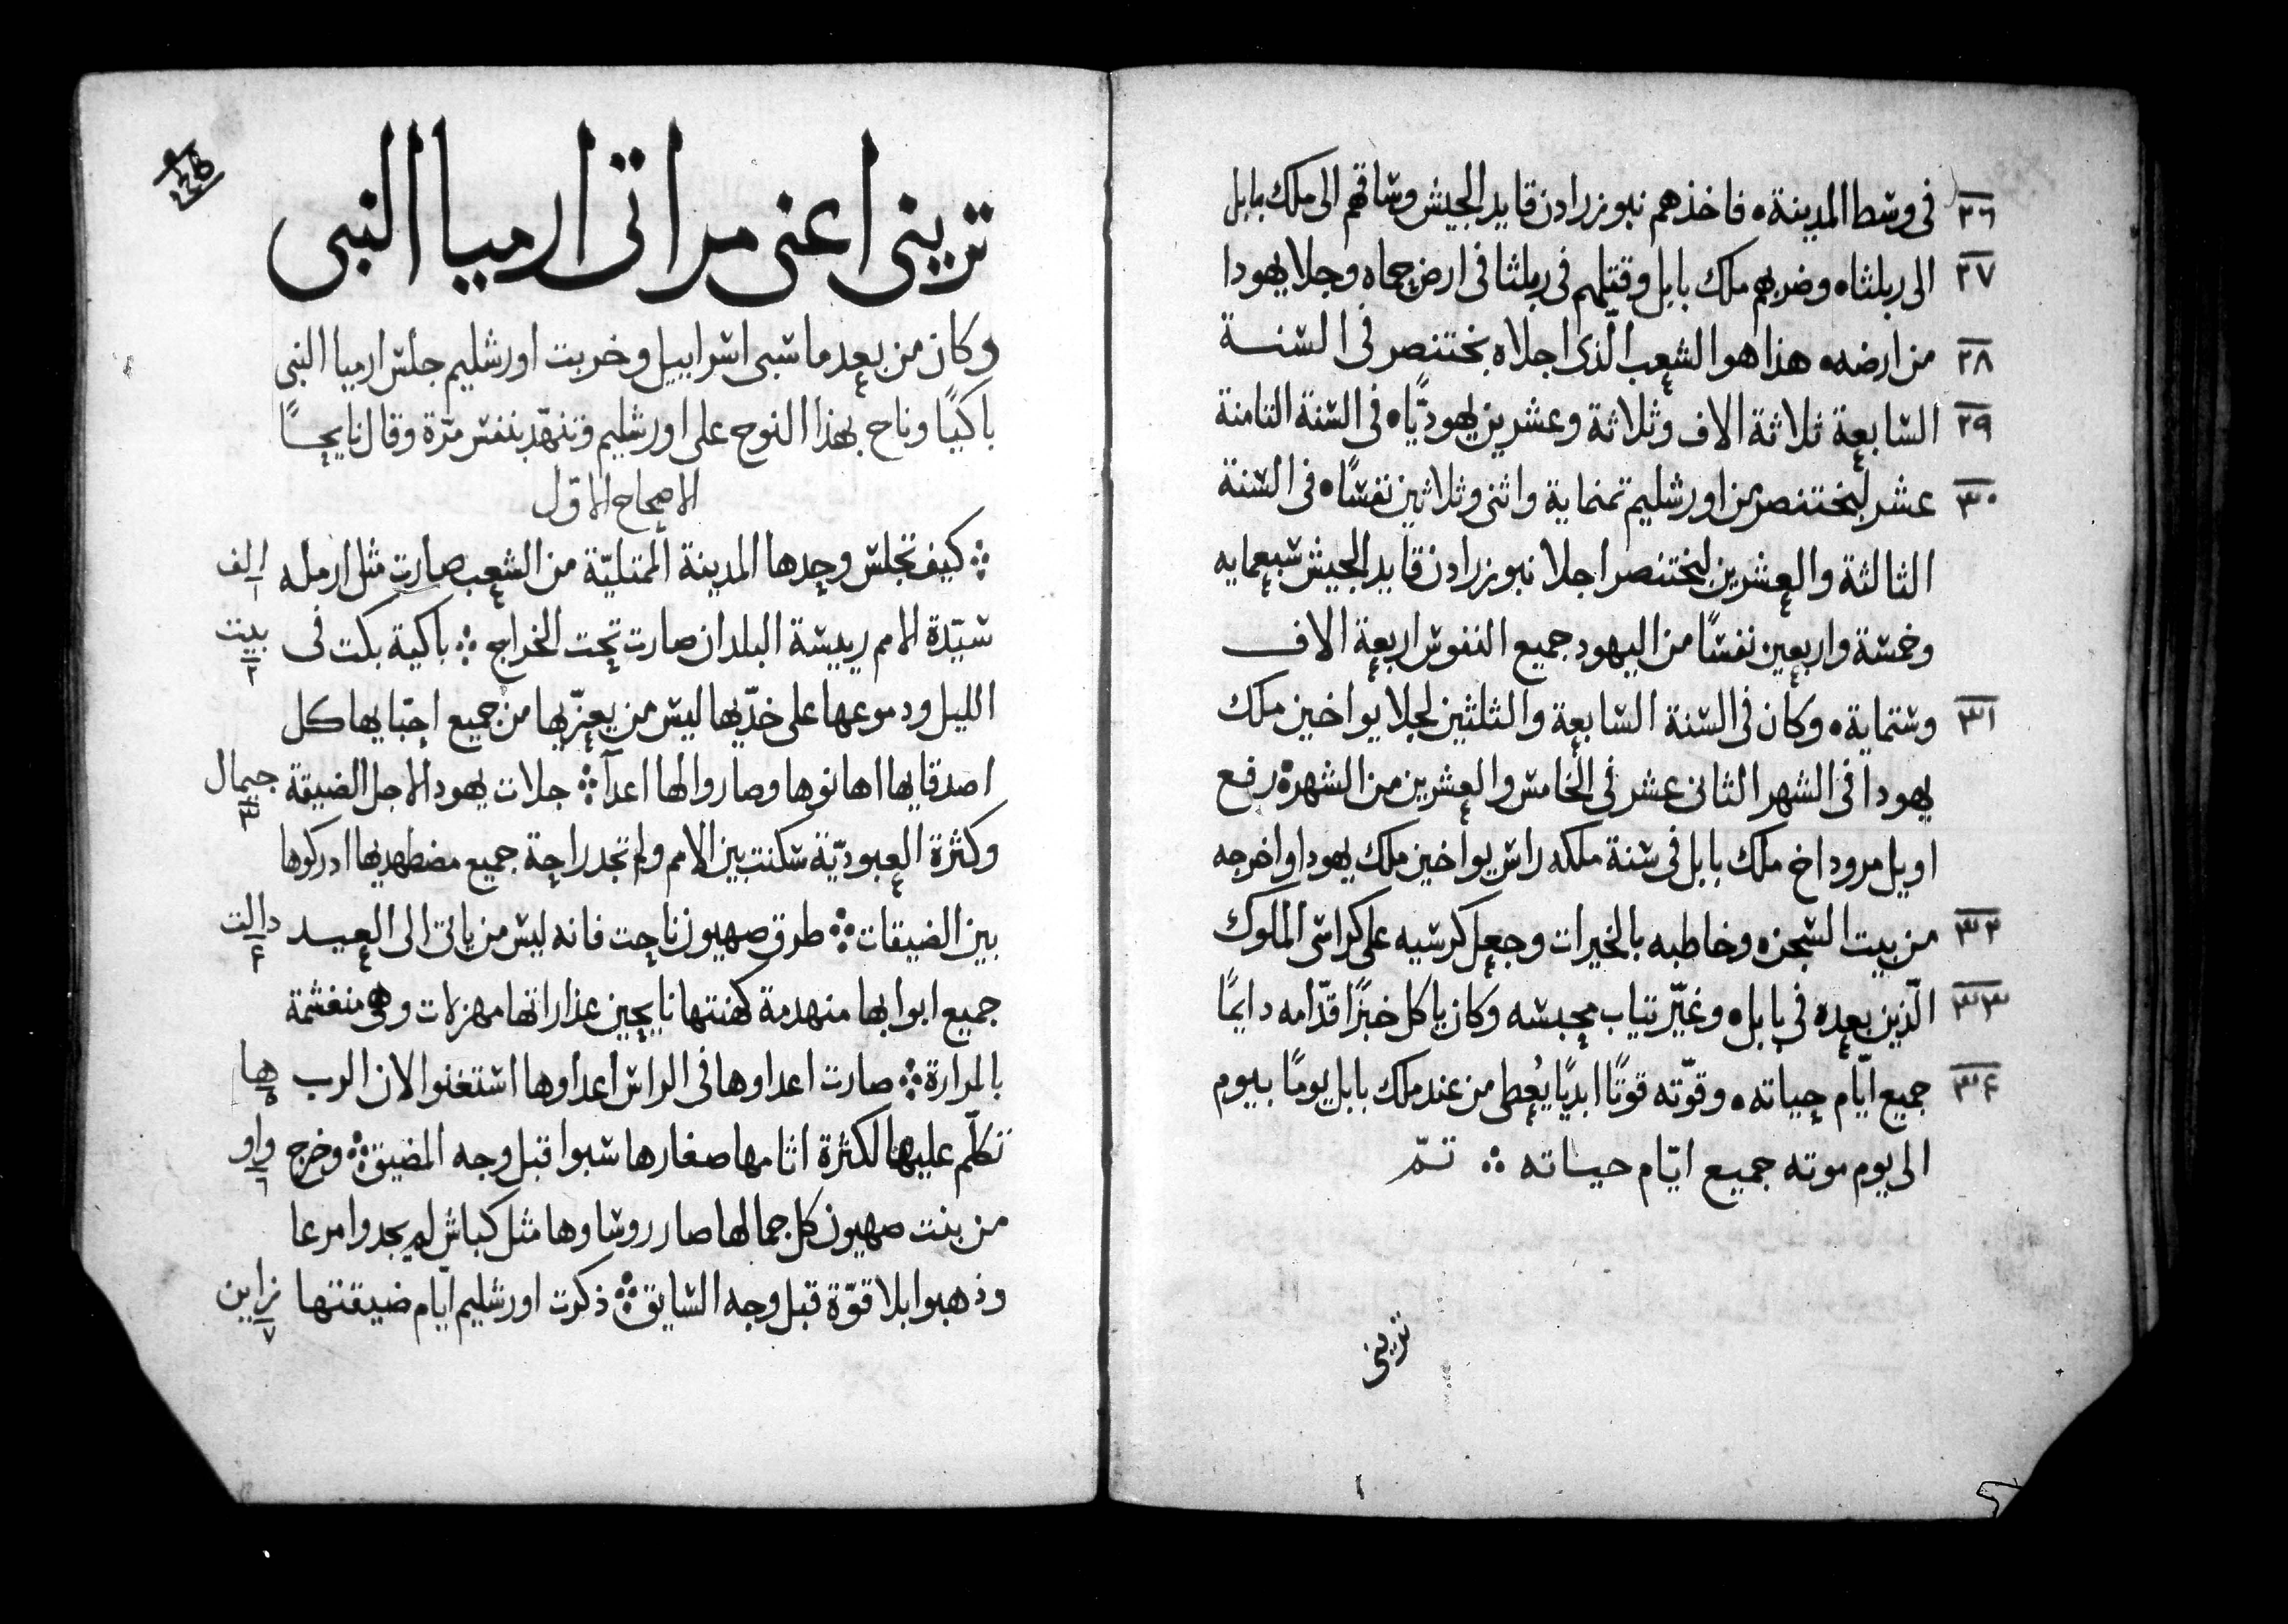 ٢٦ في وسط المدينة • فاخذهم نبوزرادن قايد الجيش وساقهم الى ملك بابل
٢٧ الى ربلثا • وضربهم ملك بابل وقتلهم في ربلثا في ارض حماه وجلا يهودا
٢٨ من ارضه • هذا هو الشعب الّذي اجلاه بختنصر في السنة
٢٩ السابعة ثلاثة الاف وثلاثة وعشرين يهوديًّا • في السنة الثامنة
٣٠ عشر لبختنصر من اورشليم ثمنماية واثنى وثلاثين نفسًا • في السنة
الثالثة والعشرين لبختنصر اجلا نبوزرادن قايد الجيش سبعمايه
وخمسة واربعين نفسًا من اليهود جميع النفوس اربعة الاف
٣١ وستماية • وكان في السنة السابعة والثلثين لجلا يواخين ملك
يهودا في الشهر الثاني عشر في الخامس والعشرين من الشهر رفع
اويل مروداخ ملك بابل في سنة ملكه راس يواخين ملك يهودا واخرجه
٣٢ من بيت السجن • وخاطبه بالخيرات وجعل كرسيه على كراسي الملوك
٣٣ الّذين بعده في بابل • وغيّر تياب محبسه وكان ياكل خبزًا قدّامه دايمًا
٣٤ جميع ايّام حياته • وقوّته قوتًا ابديًا يُعطى من عند ملك بابل يومًا بيوم
الى يوم موته جميع ايّام حياته ⁘ تمّ
تريني
تريني اعني مراتي ارميا النبي
وكان من بعد ما سبي اسراييل وخربت اورشليم جلس ارميا النبي
باكيًا وناح بهذا النوح على اورشليم وتنهّد بنفس مرّة وقال نايحًا
الاصحاح الاوّل
⁘ كيف تجلس وحدها المدينة الممتليّة من الشعب صارت مثل ارمله الف ١
سيّدة الامم رييسة البلدان صارت تحت الخراج ⁘ باكية بكت في بيت ٢
الليل ودموعها على خدّيها ليس من يعزّيها من جميع احبّايها كل
اصدقايها اهانوها وصاروا لها اعدآ ⁘ جلات يهودا لاجل الضيقة جيمال ٣
وكثرة العبوديّة سكنت بين الامم ولم تجد راحة جميع مضطهديها ادركوها
بين الضيقات ⁘ طرق صهيون ناحت فانه ليس من ياتي الى العيد دالت ۴
جميع ابوابها منهدمة كهنتها نايحين عذاراتها مهزلات وهي منغشمة
بالمرارة ⁘ صارت اعداوها في الراس اعداوها استغنوا لان الرب ها ٥
تكلّم عليها لكثرة اثامها صغارها سبوا قبل وجه المضيق ⁘ وخرج واو ٦
من بنت صهيون كل جمالها صار روساوها مثل كباش لم يجدوا مرعا
وذهبوا بلا قوّة قبل وجه السايق ⁘ ذكرت اورشليم ايّام ضيقتها زاين ٧